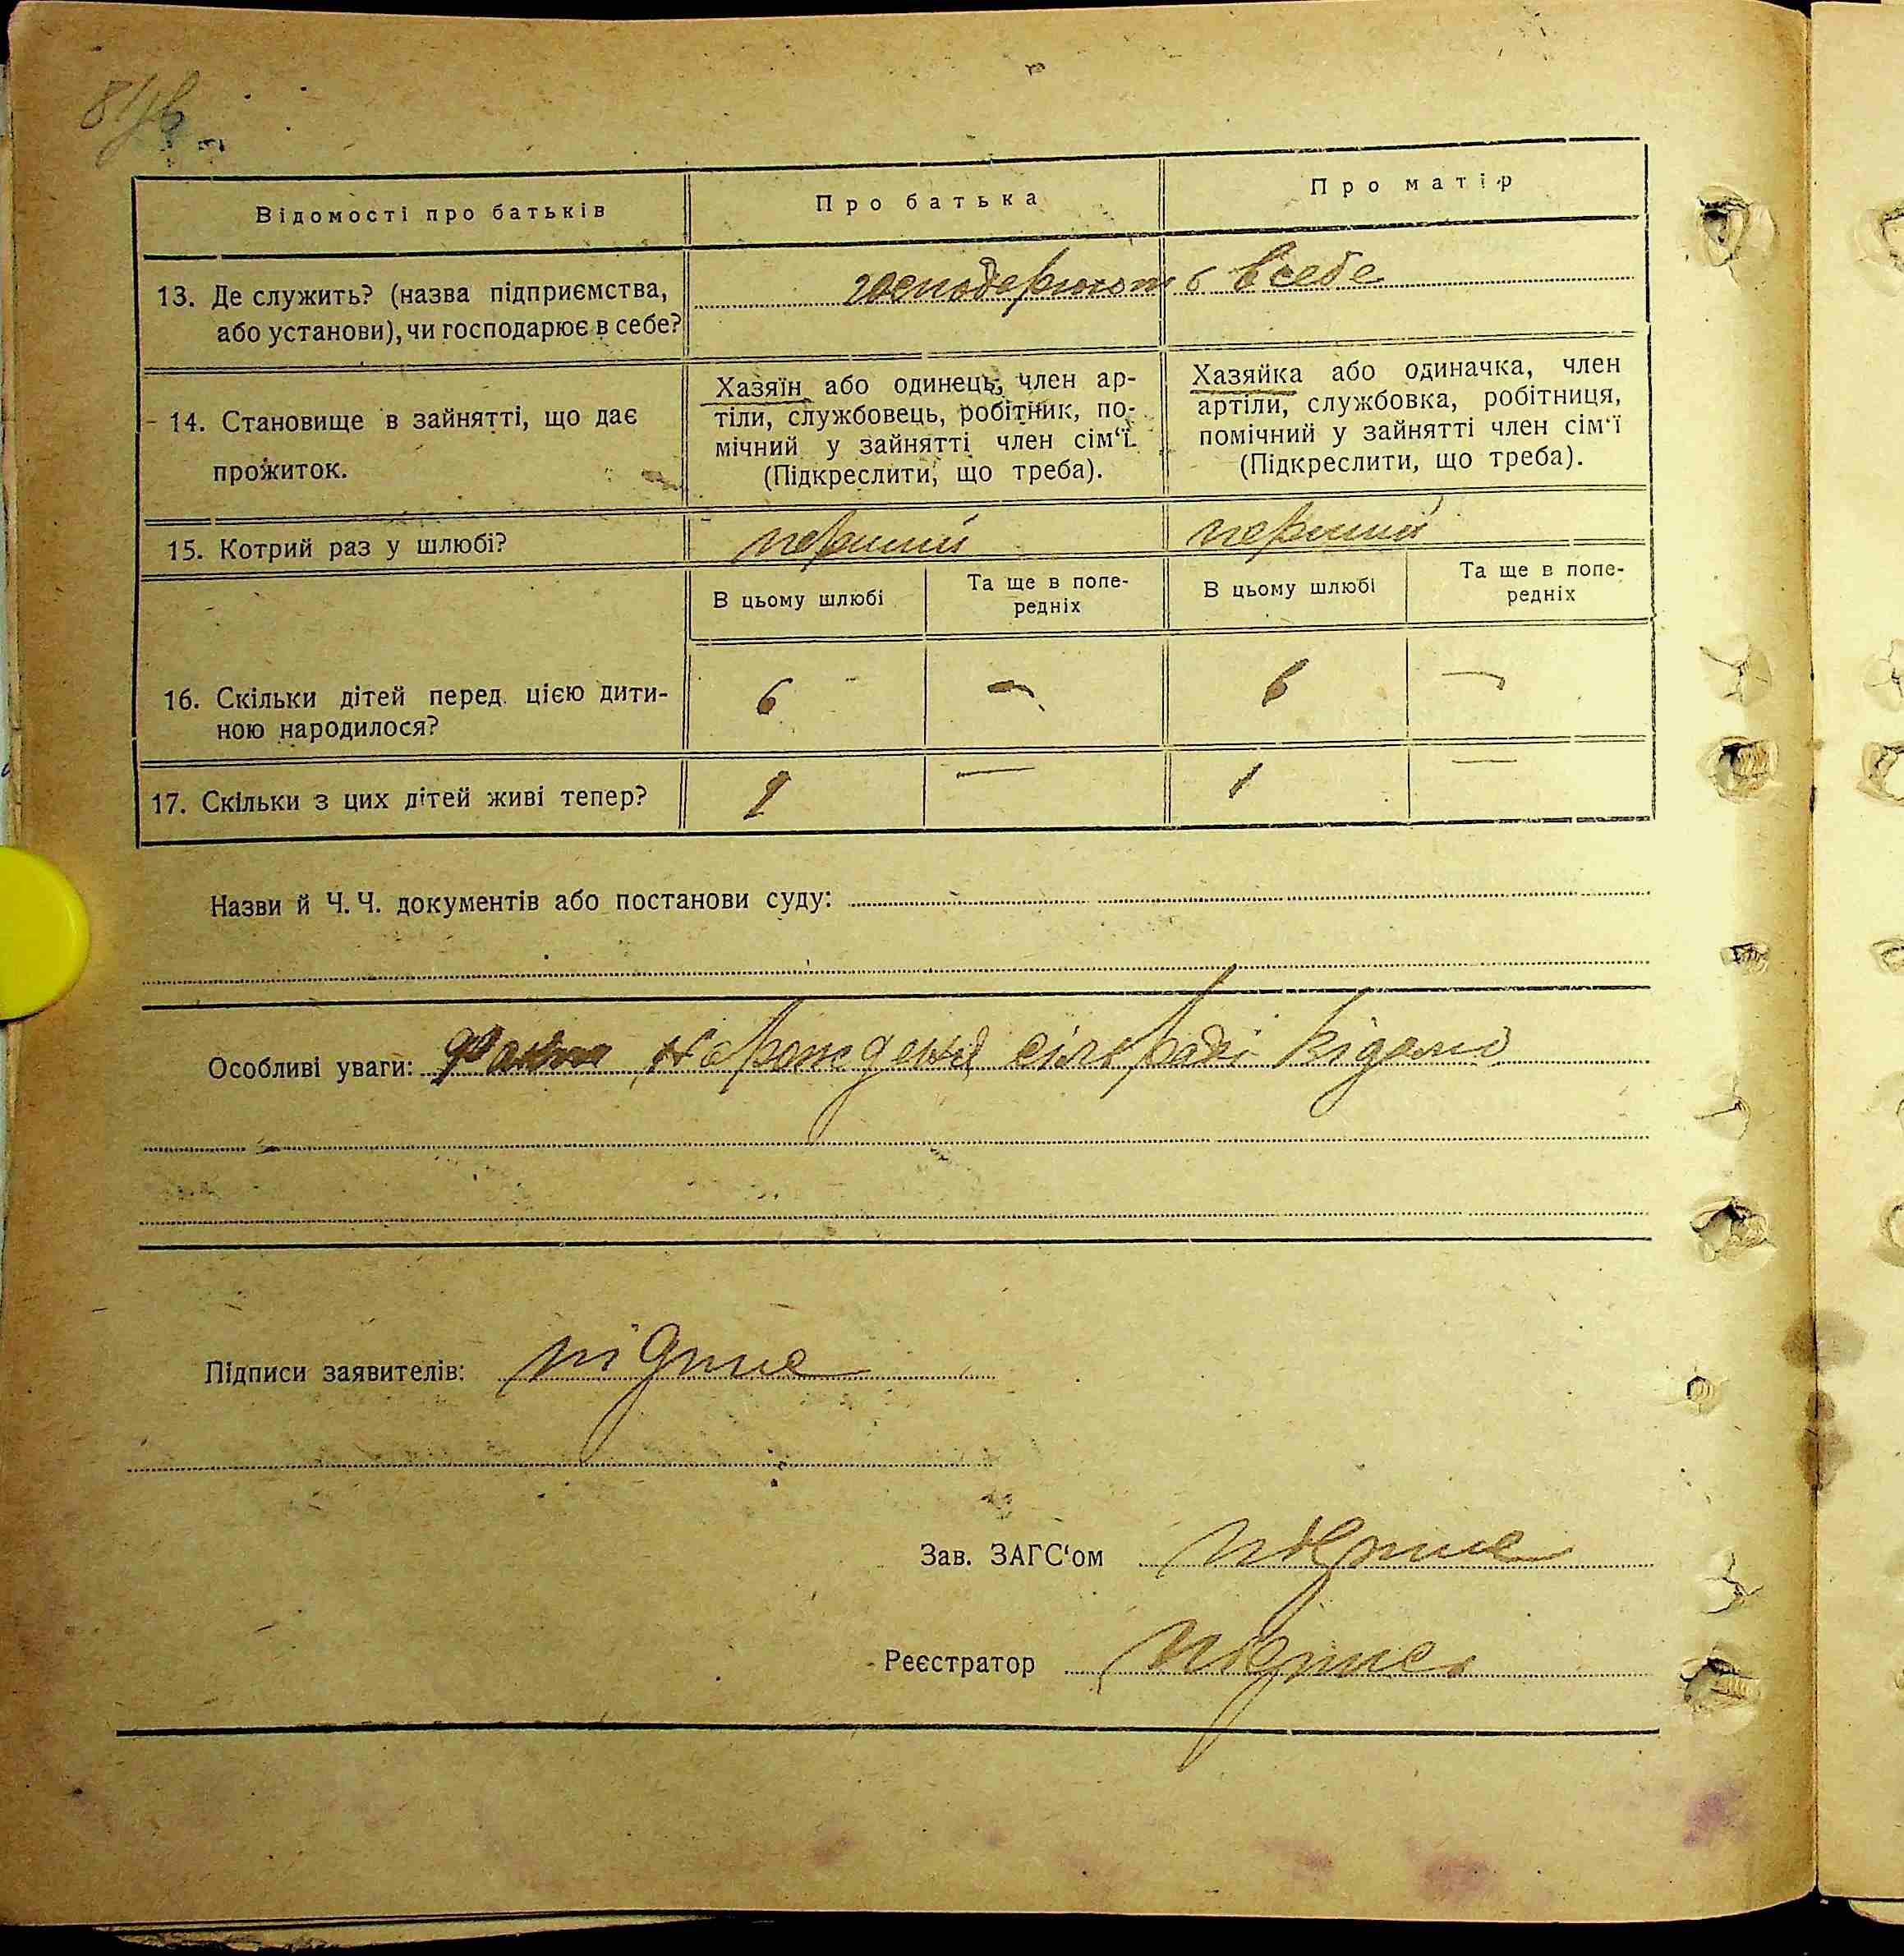 Відомості про батьків
Про батька
Про матір
13. Де служить? (назва підприємства,
або установи), чи господарює в себе?
господарюють в себе
14. Становище в зайнятті, що дає
прожиток.
Хазяїн або одинець, член ар-
тіли, службовець, робітник, по-
мічний у зайнятті член сім'ї.
(Підкреслити, що треба).
Хазяйка або одиначка, член
артіли, службовка, робітниця,
помічний у зайнятті член сім'ї
(Підкреслити, що треба).
15. Котрий раз у шлюбі?
перший
перший
В цьому шлюбі
Та ще в попе-
редніх
В цьому шлюбі
Та ще в попе-
редніх
16. Скільки дітей перед цією дити-
ною народилося?
6
—
6
—
17. Скільки з цих дітей живі тепер?
—
1
—
Назви й Ч. Ч. документів або постанови суду:
Особливі уваги: сільраді відомо
Підписи заявителів: підпис
Зав. ЗАГС'ом підпис
Реєстратор підпис